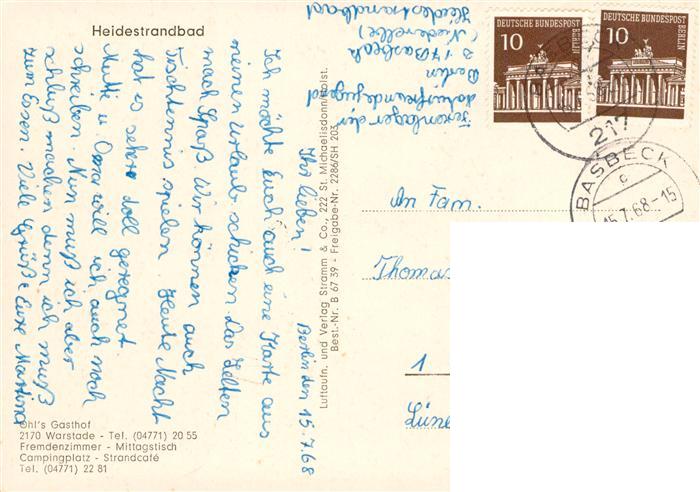 Heidestrandbad
Ihr lieben! Berlin den 15.7.68
Ich möchte Euch auch eine Karte aus
meinen Urlaub schicken. Das Zelten
mach Spaß. Wir können auch
Tischtennis spielen. Heute Nacht
hat es sehr doll geregnet
Mutti u Oma will ich auch noch
schreiben. Nun muß ich aber
schluß machen denn ich muß
zum Essen. Viele Grüße Eure Martina
Ohl's Gasthof
2170 Warstade - Tel. (04771) 20 55
Fremdenzimmer - Mittagstisch
Campingplatz - Strandcafé
Tel. (04771) 22 81
Luftaufn. und Verlag Stramm & Co., 222 St. Michaelisdonn/Holst.
Best.-Nr. B 67 39 - Freigabe-Nr. 2286/SH 203
Ferienlager der
Naturfreundejugend
Berlin
217 Basbeck
(Niederelbe)
Heidestrandbad
DEUTSCHE BUNDESPOST
BERLIN
10
DEUTSCHE BUNDESPOST
BERLIN
10
217
BASBECK
c
15.7.68-15
An Fam.
Thomas
1
Lüne